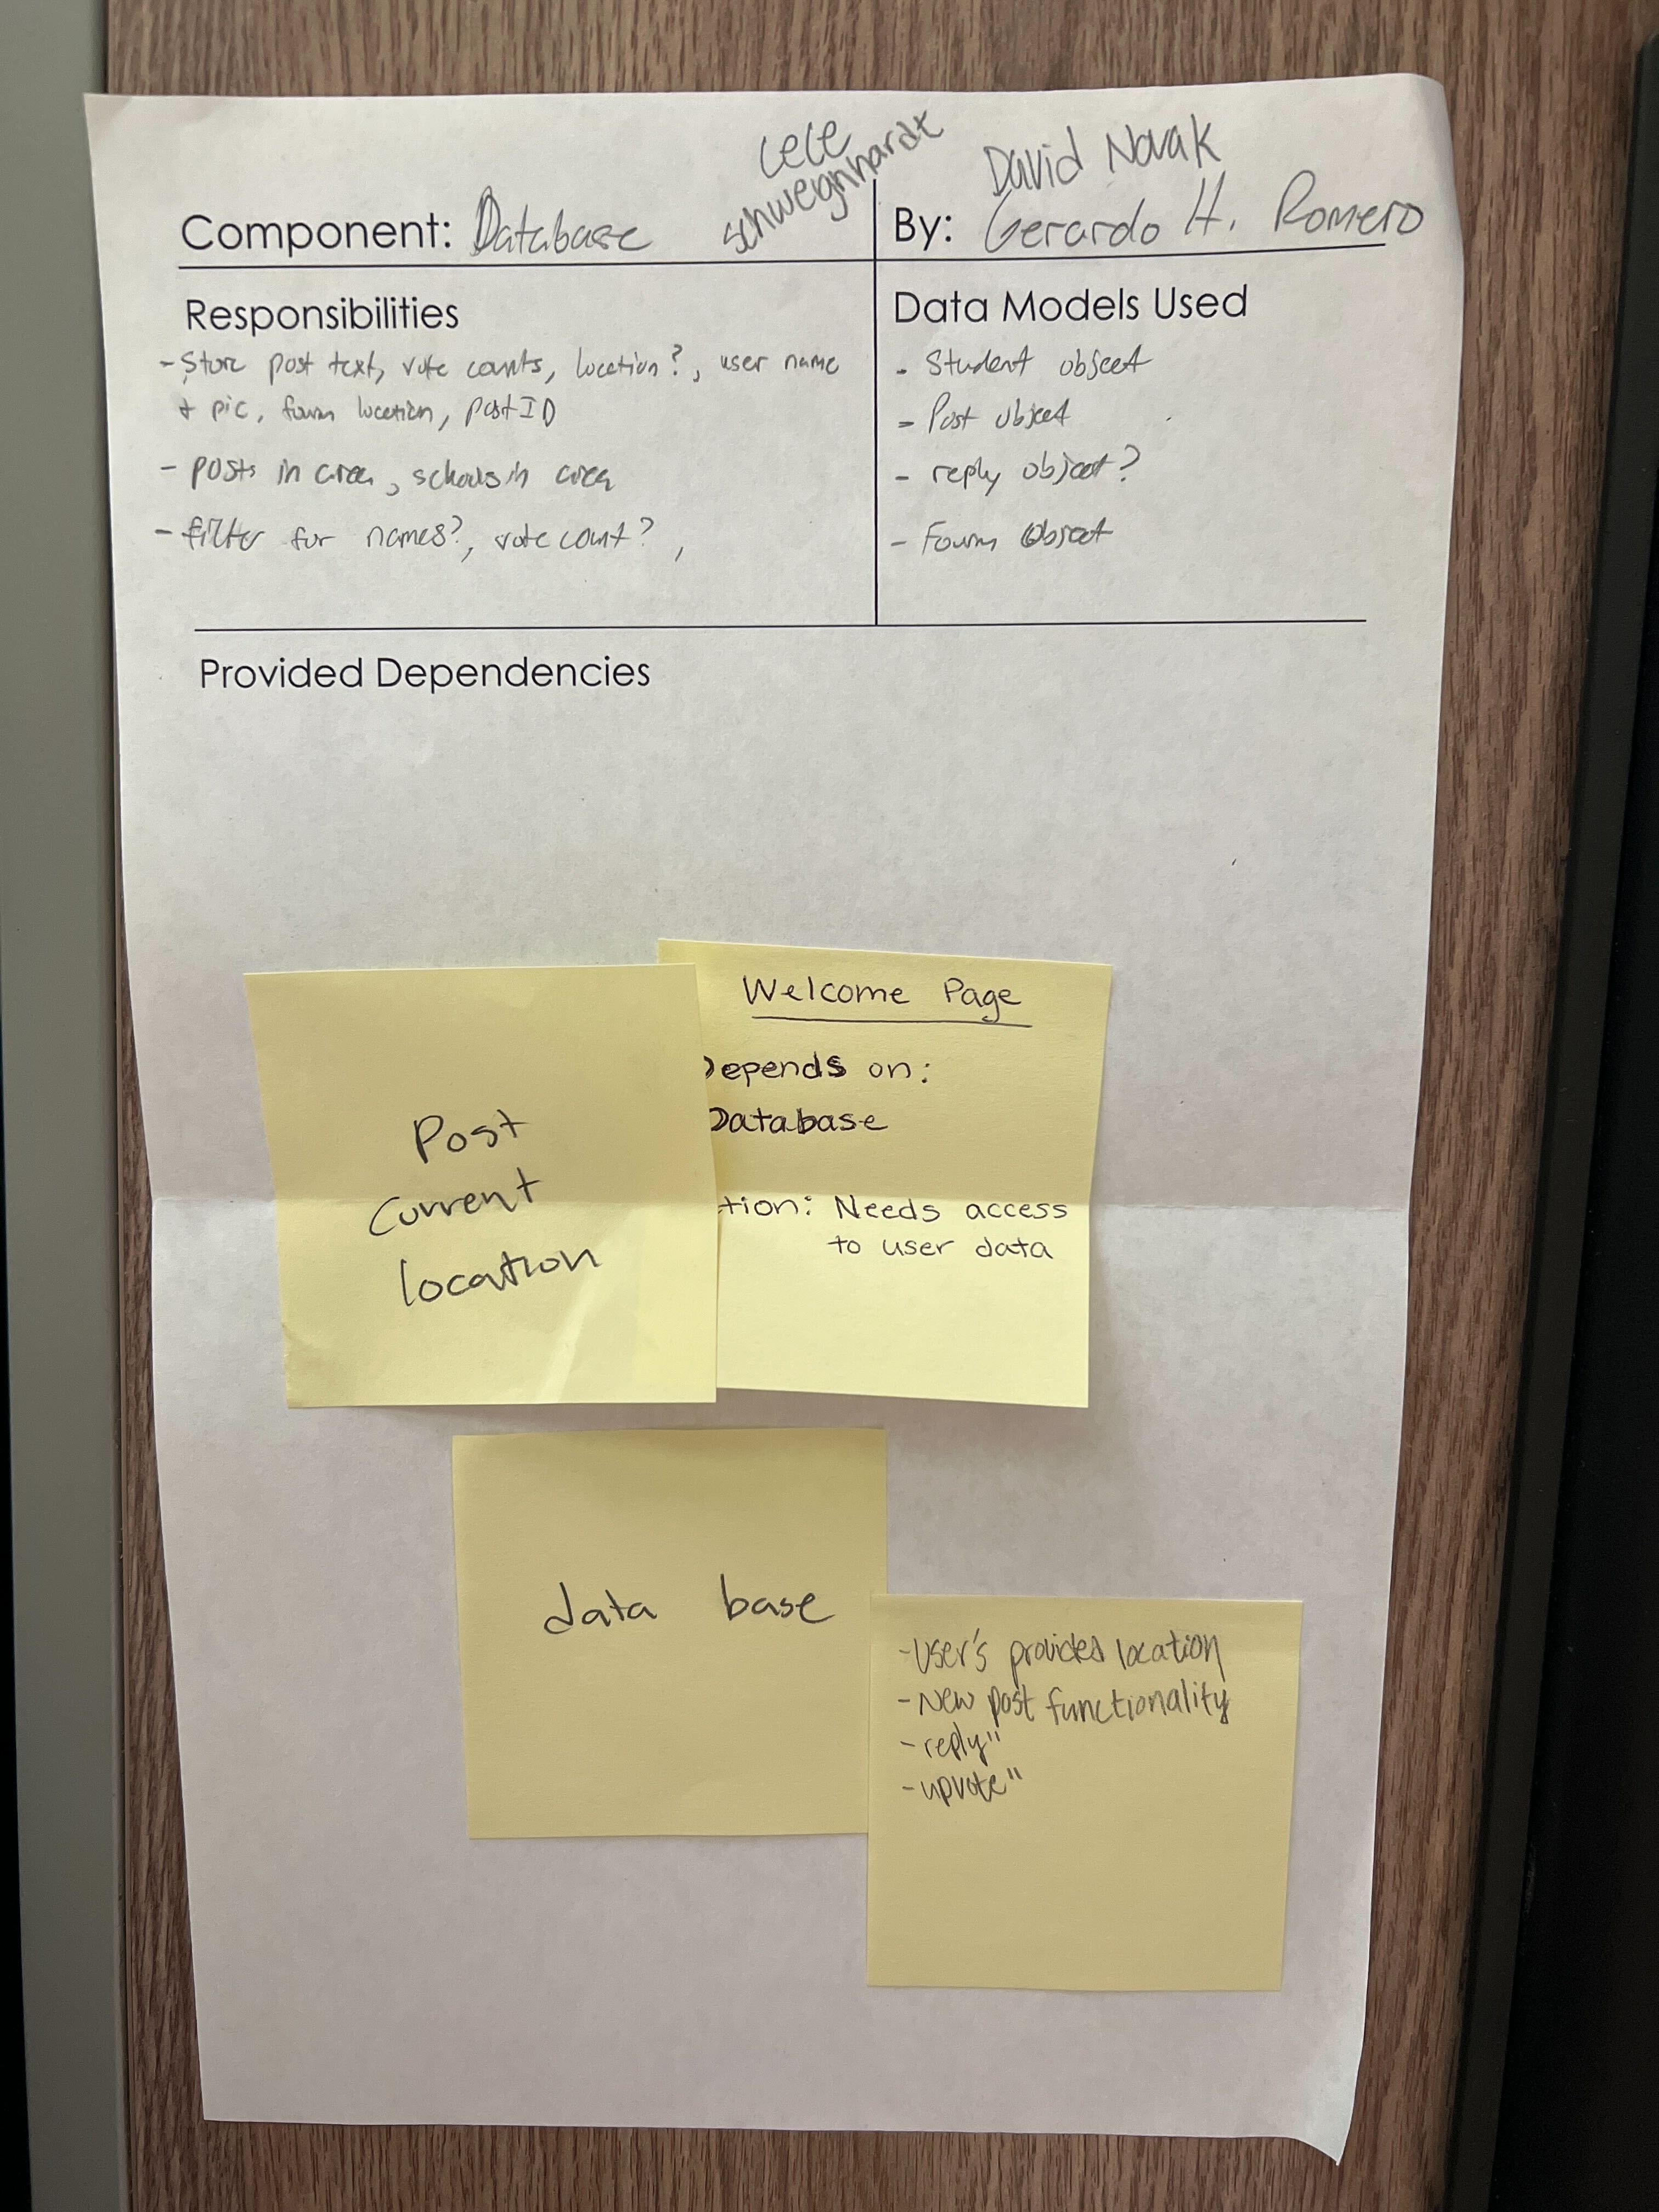 Lele
schwegnhardt
David Novak
Component: Database
By: Gerardo H. Romero
Responsibilities
- Store post text, vote counts, location?, user name
+ pic, forum location, post ID
- posts in area, schools in area
- filter for names?, vote count?,
Data Models Used
- Student object
- Post object
- reply object?
- Forum Object
Provided Dependencies
Post
Current
location
Welcome Page
Depends on:
Database
tion: Needs access
to user data
data base
- User's provides location
- New post functionality
- reply "
- upvote "